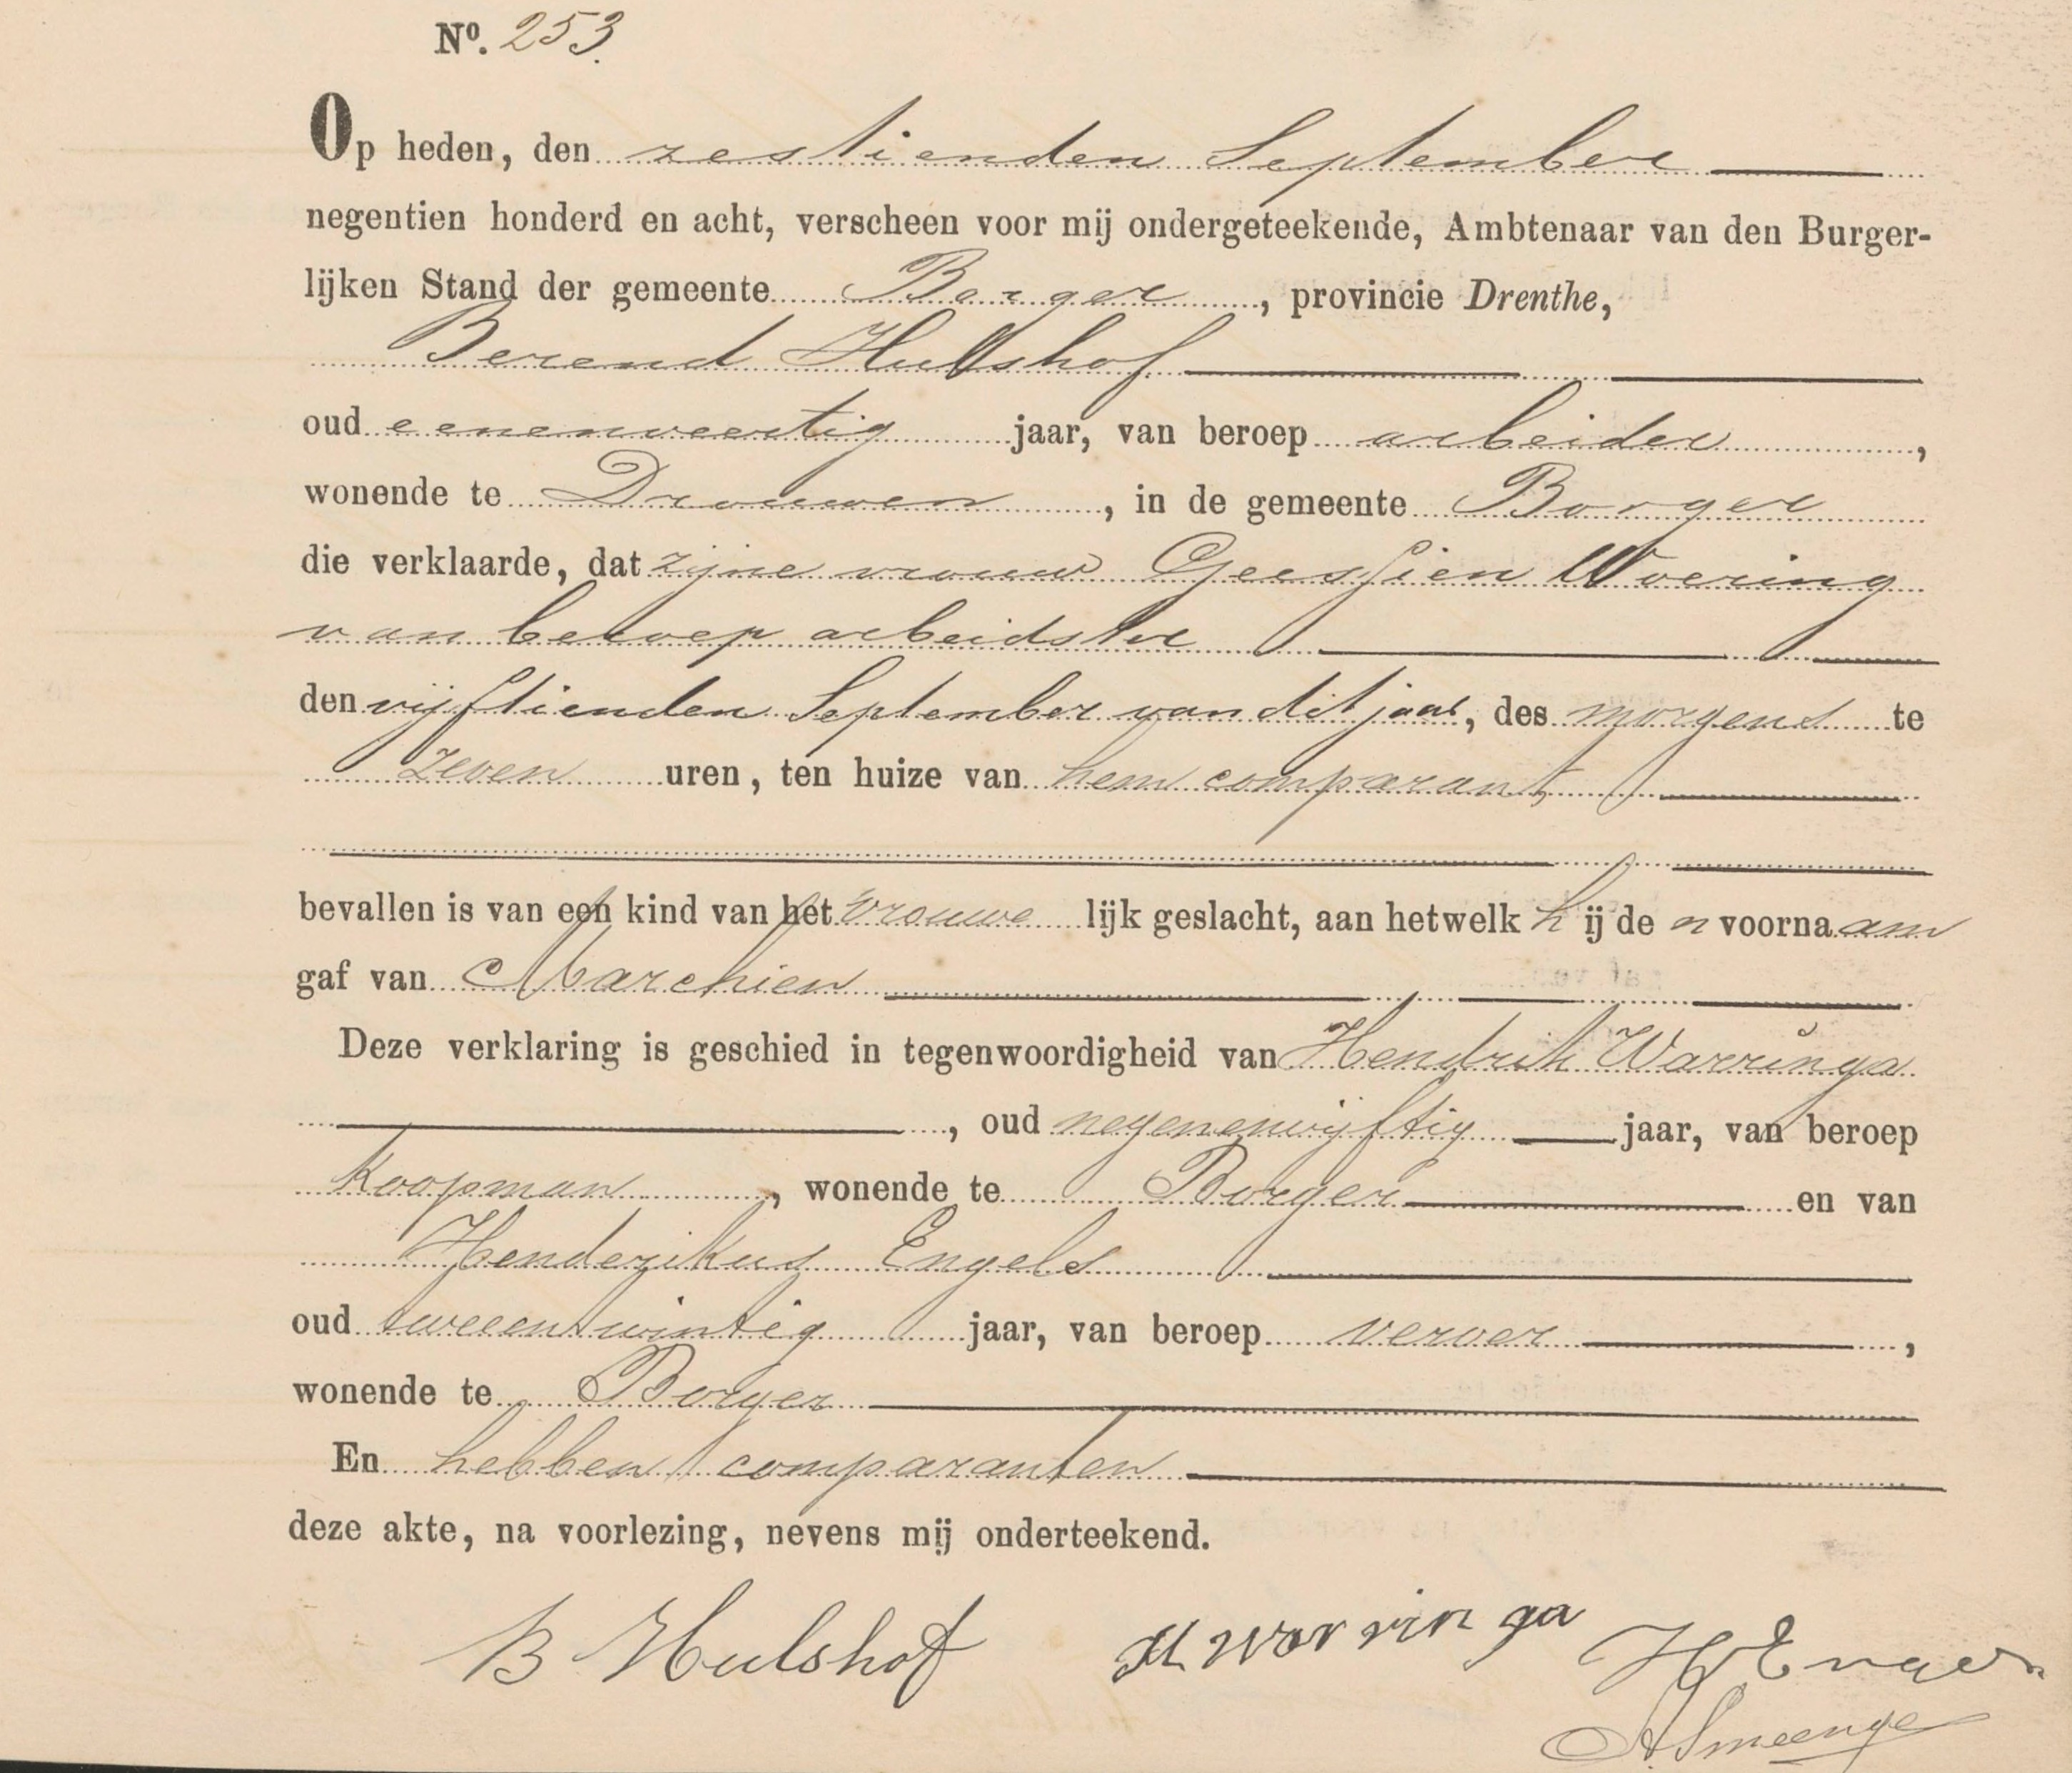 Nº. 253.
Op heden, den zestienden September
negentien honderd en acht, verscheen voor mij ondergeteekende, Ambtenaar van den Burger-
lijken Stand der gemeente Borger, provincie Drenthe,
Berend Hulshof
oud eenenveertig jaar, van beroep arbeider,
wonende te Drouwen, in de gemeente Borger
die verklaarde, dat zijne vrouw Geessien Woering
van beroep arbeidster
den vijftienden September van dit jaar, des morgens te
zeven uren, ten huize van hem comparant,
bevallen is van een kind van het vrouwelijk geslacht, aan hetwelk hij den voornaam
gaf van Marchien
Deze verklaring is geschied in tegenwoordigheid van Hendrik Warringa
, oud negenenvijftig jaar, van beroep
koopman, wonende te Borger en van
Henderikus Engels
oud tweeentwintig jaar, van beroep verver,
wonende te Borger
En hebben comparanten
deze akte, na voorlezing, nevens mij onderteekend.
B Hulshof H. Warringa H Engels
A. Smeenge